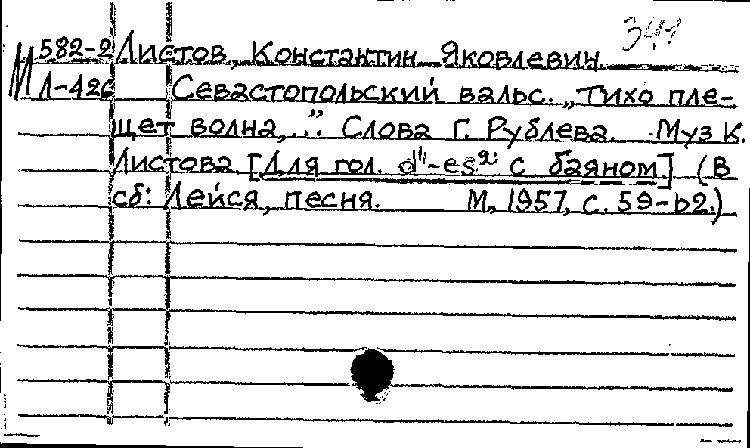 341
М 582-2 Листов, Константин Яковлевич
Л-426 Севастопольский вальс. „Тихо пле-
щет волна,..." Слова Г. Рублева. Муз К.
Листова [Для гол. d¹-es² с баяном] (В
сб: Лейся, песня. М, 1957, с. 59-62.)